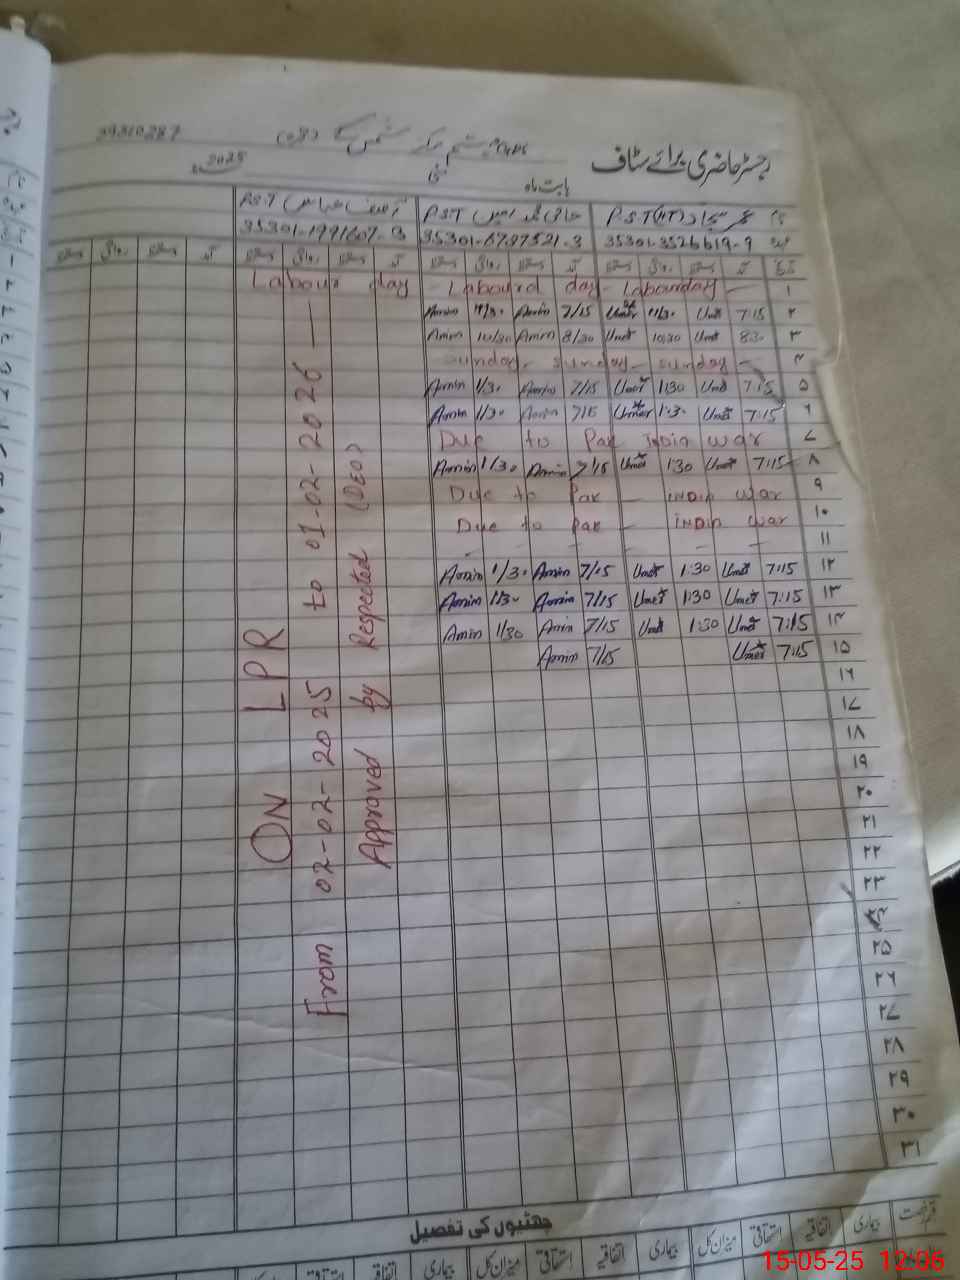 39310287
رجسٹر حاضری برائے سٹاف
2025
بابت ماہ مئی
نام P.S.T(HT) P.S.T P.S.T
عہدہ 35301-3526619-9 35301-6787521-3 35301-1991607-3
تاریخ آمد دستخط روانگی دستخط آمد دستخط روانگی دستخط آمد دستخط روانگی دستخط آمد دستخط روانگی دستخط
۱ Labour day - Labourd day - Labourday -
۲ Amin 11/30 Amin 7/15 Umer 11/30 Umer 7:15
۳ Amin 10/30 Amin 8/30 Umer 10:30 Umer 8:30
۴ Sunday - Sunday - Sunday -
۵ Amin 1/30 Amin 7/15 Umer 1:30 Umer 7:15
۶ Amin 1/30 Amin 7/15 Umer 1:30 Umer 7:15
۷ Due to Pak India war
۸ Amin 1/30 Amin 7/15 Umer 1:30 Umer 7:15
۹ Due to Pak - India war
۱۰ Due to Pak - India war
۱۱ - - - - -
۱۲ Amin 1/30 Amin 7/15 Umer 1:30 Umer 7:15
۱۳ Amin 1/30 Amin 7/15 Umer 1:30 Umer 7:15
۱۴ Amin 1/30 Amin 7/15 Umer 1:30 Umer 7:15
۱۵ Amin 7/15 Umer 7:15
۱۶
۱۷
۱۸
۱۹
۲۰
۲۱
۲۲
۲۳
۲۴
۲۵
۲۶
۲۷
۲۸
۲۹
۳۰
۳۱
ON LPR
From 02-02-2025 to 01-02-2026 -
Approved by Respected (DEO)
چھٹیوں کی تفصیل
قسم رخصت بیماری اتفاقیہ استحقاقی میزان کل بیماری اتفاقیہ استحقاقی میزان کل بیماری اتفاقیہ استحقاقی میزان کل
15-05-25 12:06